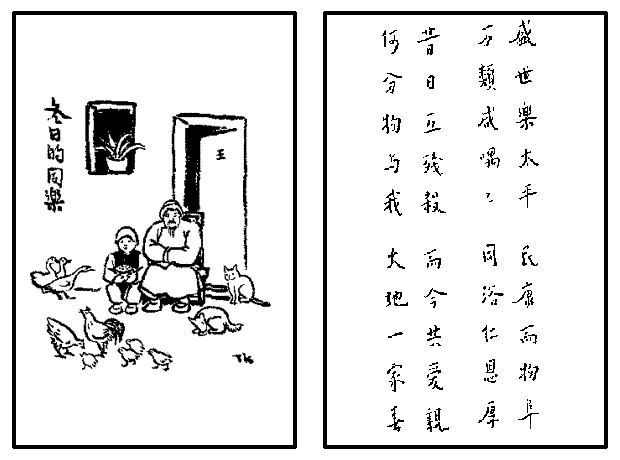 冬日的同樂
王
TK
盛世樂太平 民康而物阜
万類咸喁々 同浴仁恩厚
昔日互殘殺 而今共愛親
何分物与我 大地一家春